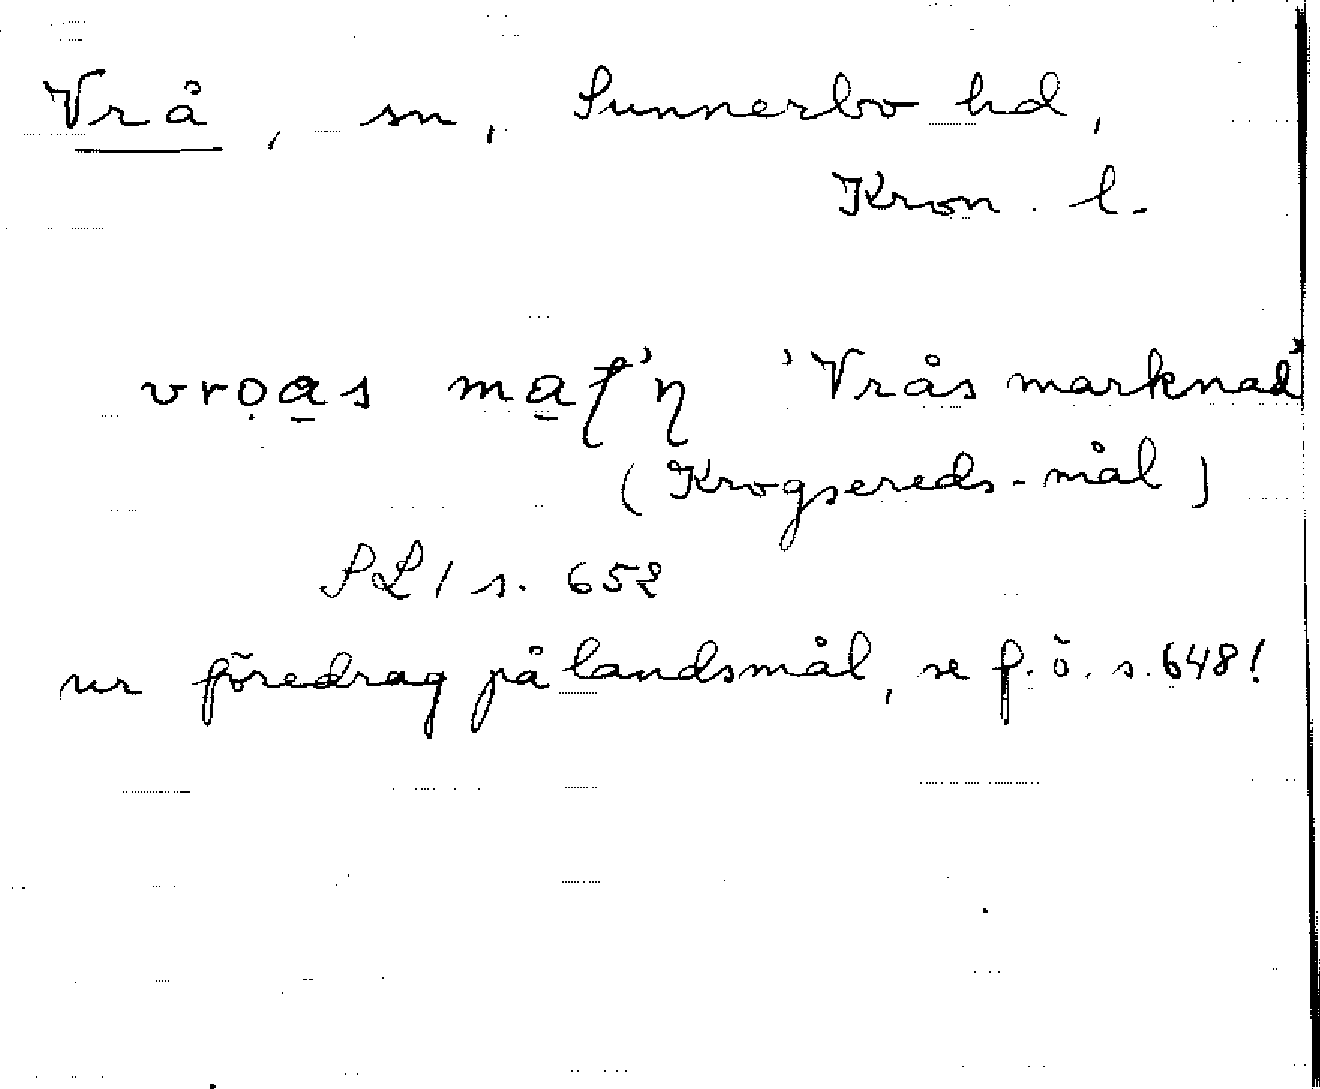 Vrå, sn, Sunnerbo hd,
Kron. l.
vrọa̲s ma̲ʃ'ŋ 'Vrås marknad'
(Krogsereds-mål)
SL 1 s. 652
ur föredrag på landsmål, se f. ö. s. 648!